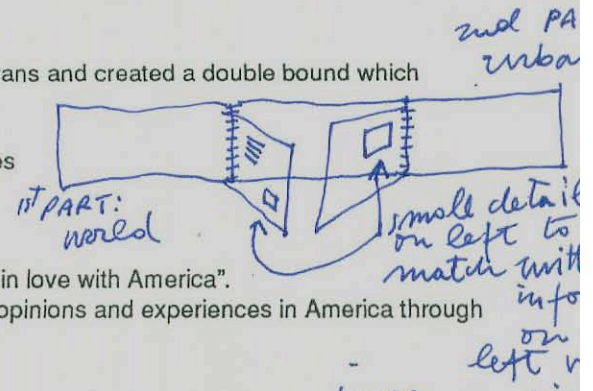 2nd PA
urba
ans and created a double bound which
es
1st PART:
world
small detail
on left to
match with
in love with America".
info
opinions and experiences in America through
on
left